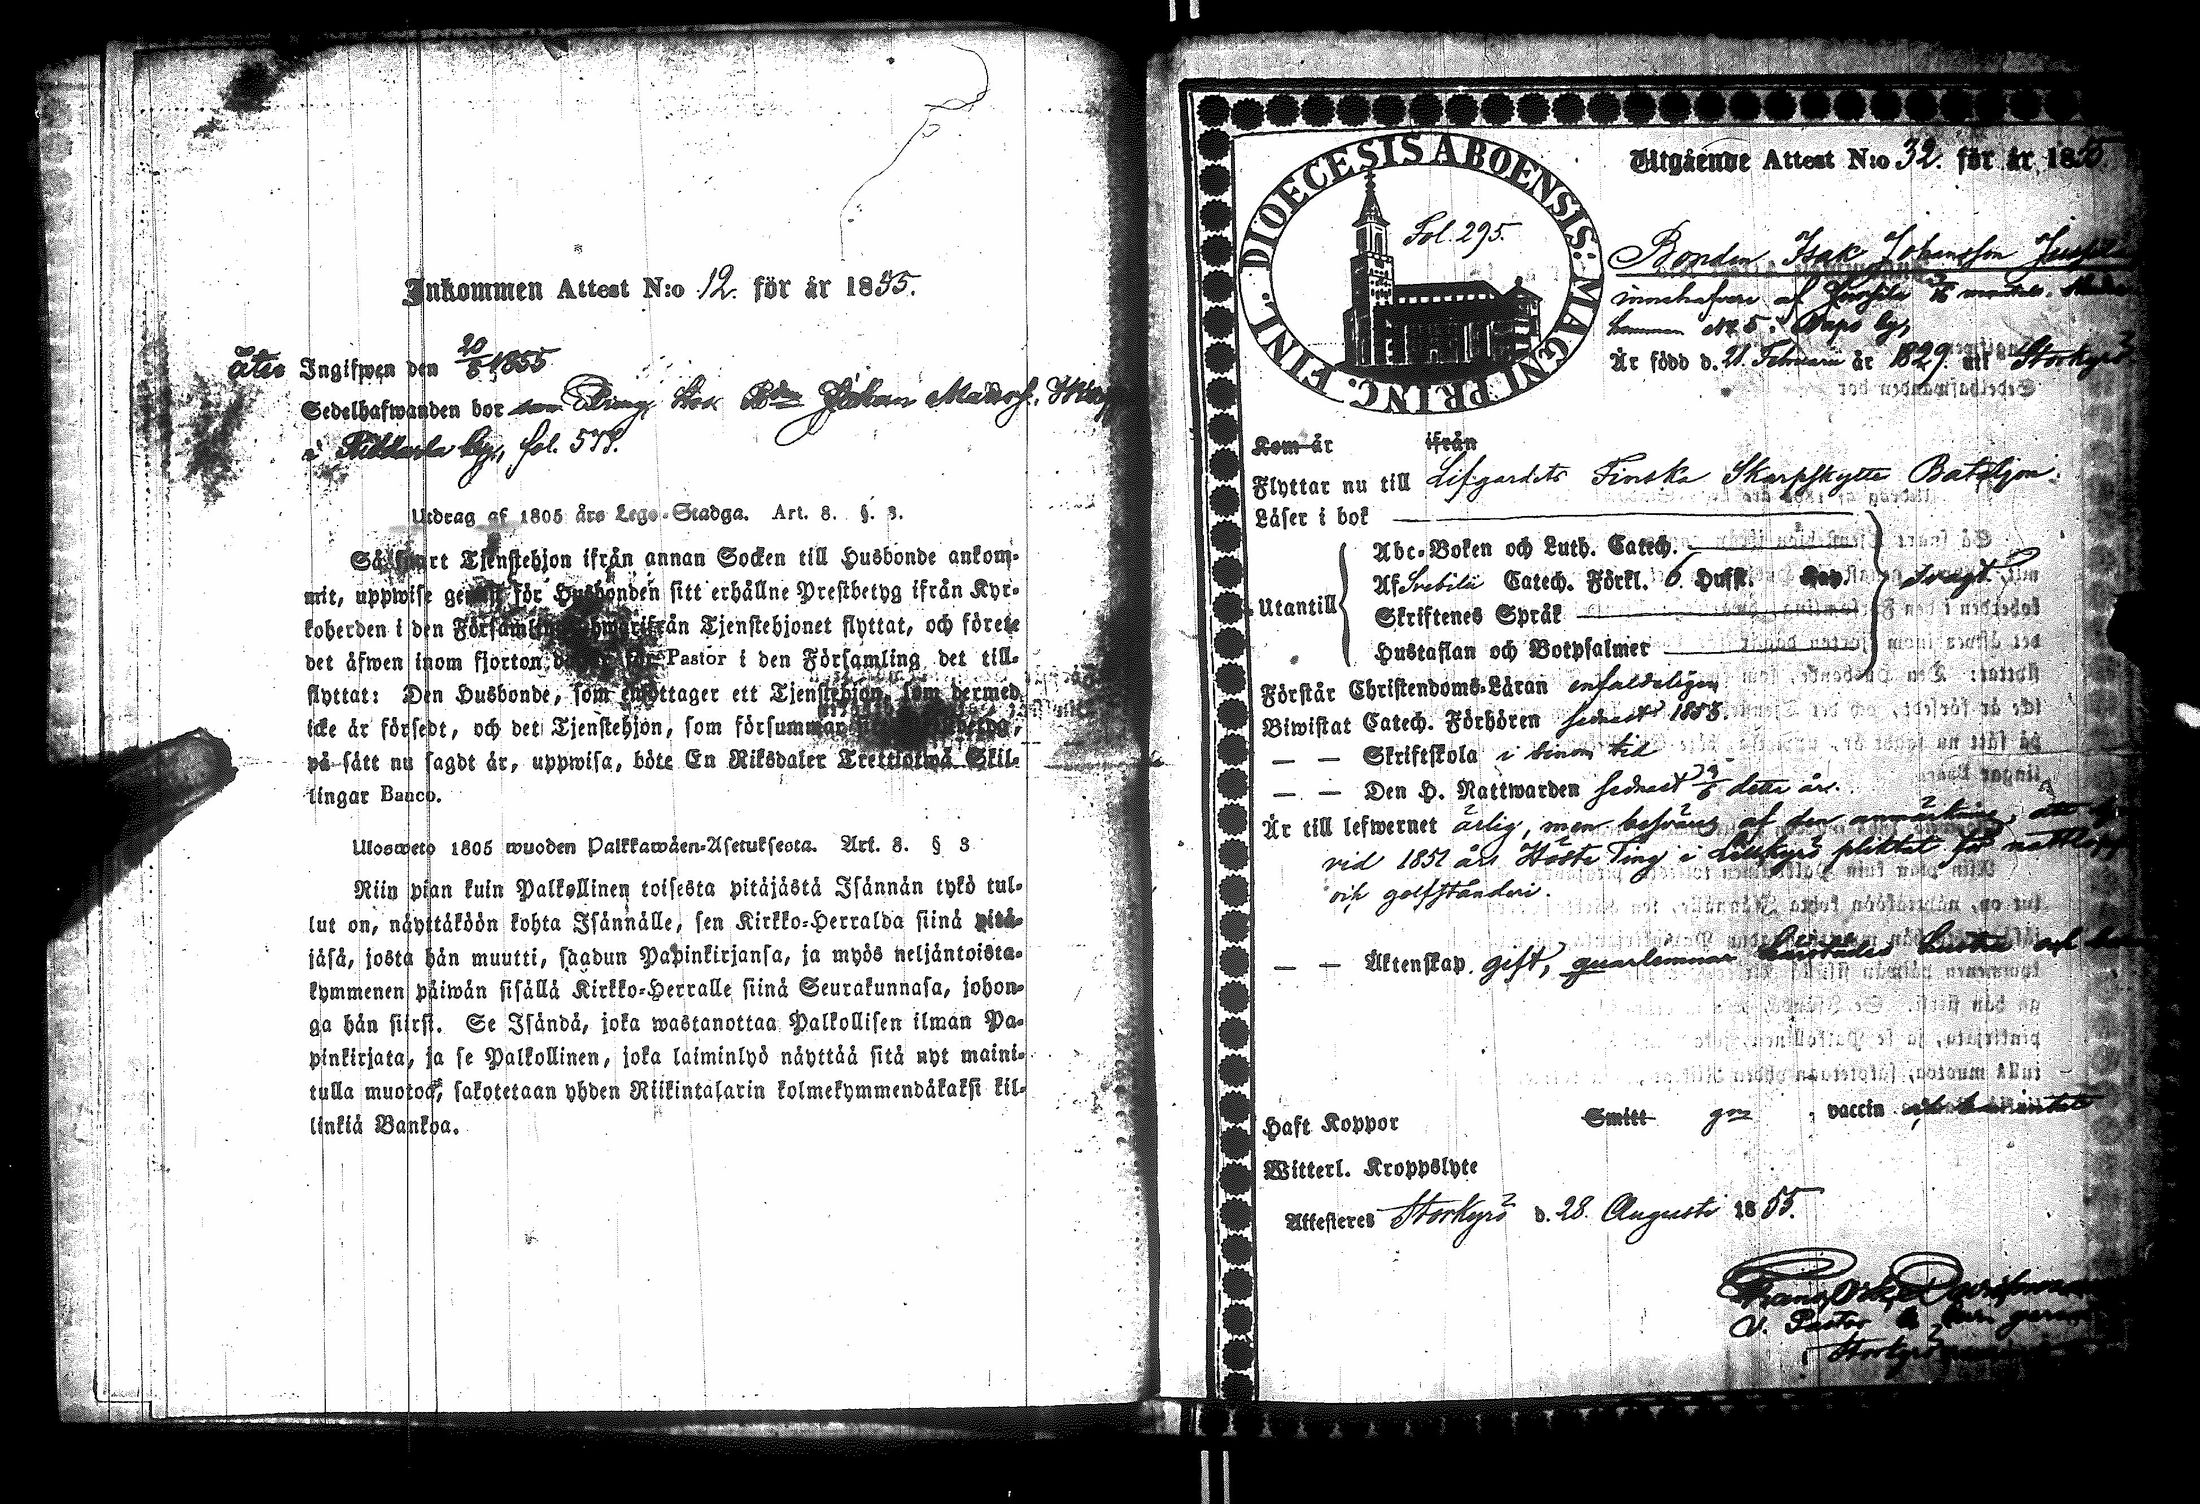 Inkommen Attest N:o 12. för år 1855.
åter Ingifwen den 20/8 1855
Sedelhafwanden bor Dräng hos Johan
by, fol. 578.
Utdrag af 1805 års Lego-Stadga. Art. 8. §. 3.
Så snart Tjenstehjon ifrån annan Socken till Husbonde ankom-
mit, uppwise genast för Husbonden sitt erhållne Prestbetyg ifrån Kyr-
koherden i den Församling hwarifrån Tjenstehjonet flyttat, och förete
det äfwen inom fjorton dagar för Pastor i den Församling det till-
flyttat: Den Husbonde, som emottager ett Tjenstehjon, som dermed
icke är försedt, och det Tjenstehjon, som försummar
på sätt nu sagdt är, uppwisa, böte En Riksdaler Trettiotwå Skil-
lingar Banco.
Ulosweto 1805 wuoden Palkkawäen-Asetuksesta. Art. 8. § 3
Niin pian kuin Palkollinen toisesta pitäjästä Isännän tykö tul-
lut on, näyttäköön kohta Isännälle, sen Kirkko-Herralda siinä pitä-
jäsä, josta hän muutti, saadun Papinkirjansa, ja myös neljäntoista-
kymmenen päiwän sisällä Kirkko-Herralle siinä Seurakunnasa, johon-
ga hän siirsi. Se Isändä, joka wastanottaa Palkollisen ilman Pa-
pinkirjata, ja se Palkollinen, joka laiminlyö näyttää sitä nyt maini-
tulla muotoa, sakotetaan yhden Riikintalarin kolmekymmendäkaksi kil-
linkiä Bankoa.
DIOECESIS ABOENSIS: MAGNI PRINC. FINL.
Fol. 295.
Utgående Attest N:o 32. för år 1855.
Bonden Isak Johansson
innehafvare af Jussila mantals
hemman No 5. by,
Är född d. 21. Februari år 1829. uti Storkyrö
Kom år ifrån
Flyttar nu till Lifgardets Finska Skarpskytte Bataljon.
Läser i bok
Utantill
Abc-Boken och Luth. Catech.
Af Svebilii Catech. Förkl. 6. Husst. Kap. svagt.
Skriftenes Språk
Hustaflan och Botpsalmer
Förstår Christendoms-Läran enfaldeligen
Biwistat Catech. Förhören sednast 1855.
— — Skriftskola i sinom tid
— — Den H. Nattwarden sednast dette år.
Är till lefwernet ärlig, men besväras af den anmärkning, att
vid 1851 års Höste Ting i Lillkyrö pliktat för
och
— — Äktenskap. gift, qvarlemnar härstädes hustru och
Haft Koppor Smitt , vaccin
Witterl. Kroppslyte
Attesteres Storkyrö d. 28. Augusti 1855.
V. Pastor
Storkyrö